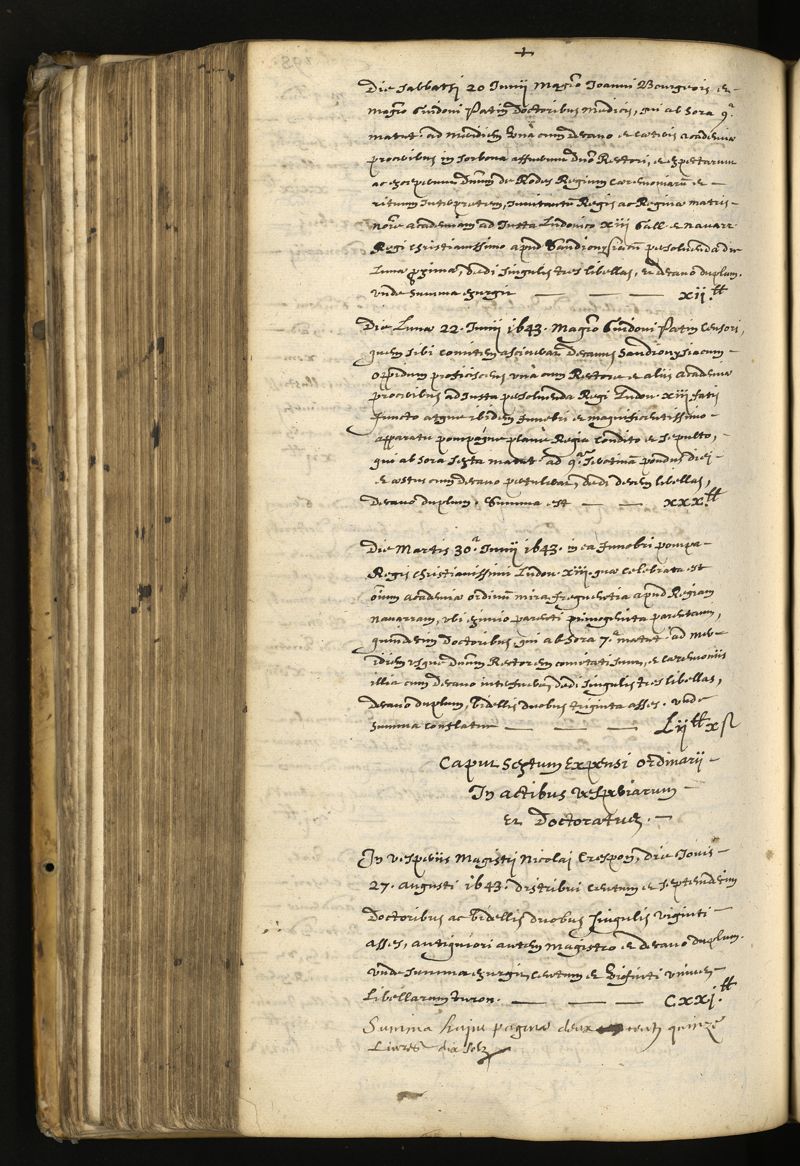 +
Die Sabbathi 20 Junii Magro Joanni Bourgeois et
Magro Guidoni Patin Doctoribus Medicis, qui ab hora 9a
matut. ad meridiem una cum decano et cæteris academiæ
proceribus in Sorbona affuerunt Dno Rectori, et expectarunt
ac exceperunt Dnum de Rodes Regium cæremoniarũ et
rituum Interpretem, invitantũ Regis ac Reginæ matris
nomĩe academiam ad Justa Ludovico xiii Gall. et Navarr.
Regi Christianissimo apud Sandionysiacũ persolvenda die
Lunæ proxima, dedi singulis tres libellas, et decano duplum.
unde summa exurgit — — — xii.tt
Die Lunæ 22. Junii 1643. Magro Guidoni Patin Censori,
quem sibi comitem asciverat Decanus Sandionysiacum
oppidum proficiscens una cum Rectore et aliis academiæ
proceribus ad Justa persolvenda Regi Ludov. xiii fatis
functo atque ibidem funebri et magnificentissimo
apparatu pompaque plane Regia condito et sepulto,
qui ab hora sexta matut. ad 9am serotinã pondus diei
et æstus cum decano pertulerat, dedi decem libellas,
decano duplum. Summa est — — xxx.tt
Die Martis 30a Junii 1643. in ea funebri pompa
Regis Christianissimi Ludov. xiii. quæ celebrata est
oĩum academiæ ordinũ mira frequentia apud Regiam
Navarram, ubi eximio parenti primogenita parentavit,
quindecim Doctoribus qui ab hora 7a matut. ad meri-
diem usque Dnũm Rectorem comitati sunt, et cæremoniis
illic cum decano interfuerũt, dedi singulis tres libellas,
decano duplum, bidellis duobus triginta asses. unde
summa conflatur — — — Lii tt xſ
Caput Sextum Expensi ordinarii
In actibus Vesperiarum
et Doctoratus.
In vesperiis Magistri Nicolai Crespon, die Jovis
27. augusti 1643. distribui centum et septemdecim
Doctoribus ac bidellis duobus singulis viginti
asses, antiquiori autem magistro et decano duplum.
unde summa exurgit, centum et viginti unius
Libellarum turon. — — — C.xxi.tt
Summa hujus paginæ deux cents quinze
Livres dix solz